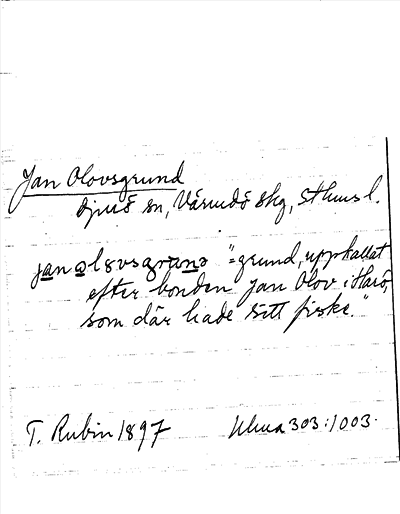 Jan Olovsgrund
Djurö sn, Värmdö skg, Sthms l.
jan olovsgrunə "=grund, uppkallat
efter bonden Jan Olov i Harö,
som där hade sitt fiske."
T. Rubin 1897 Ulma 303:1003.